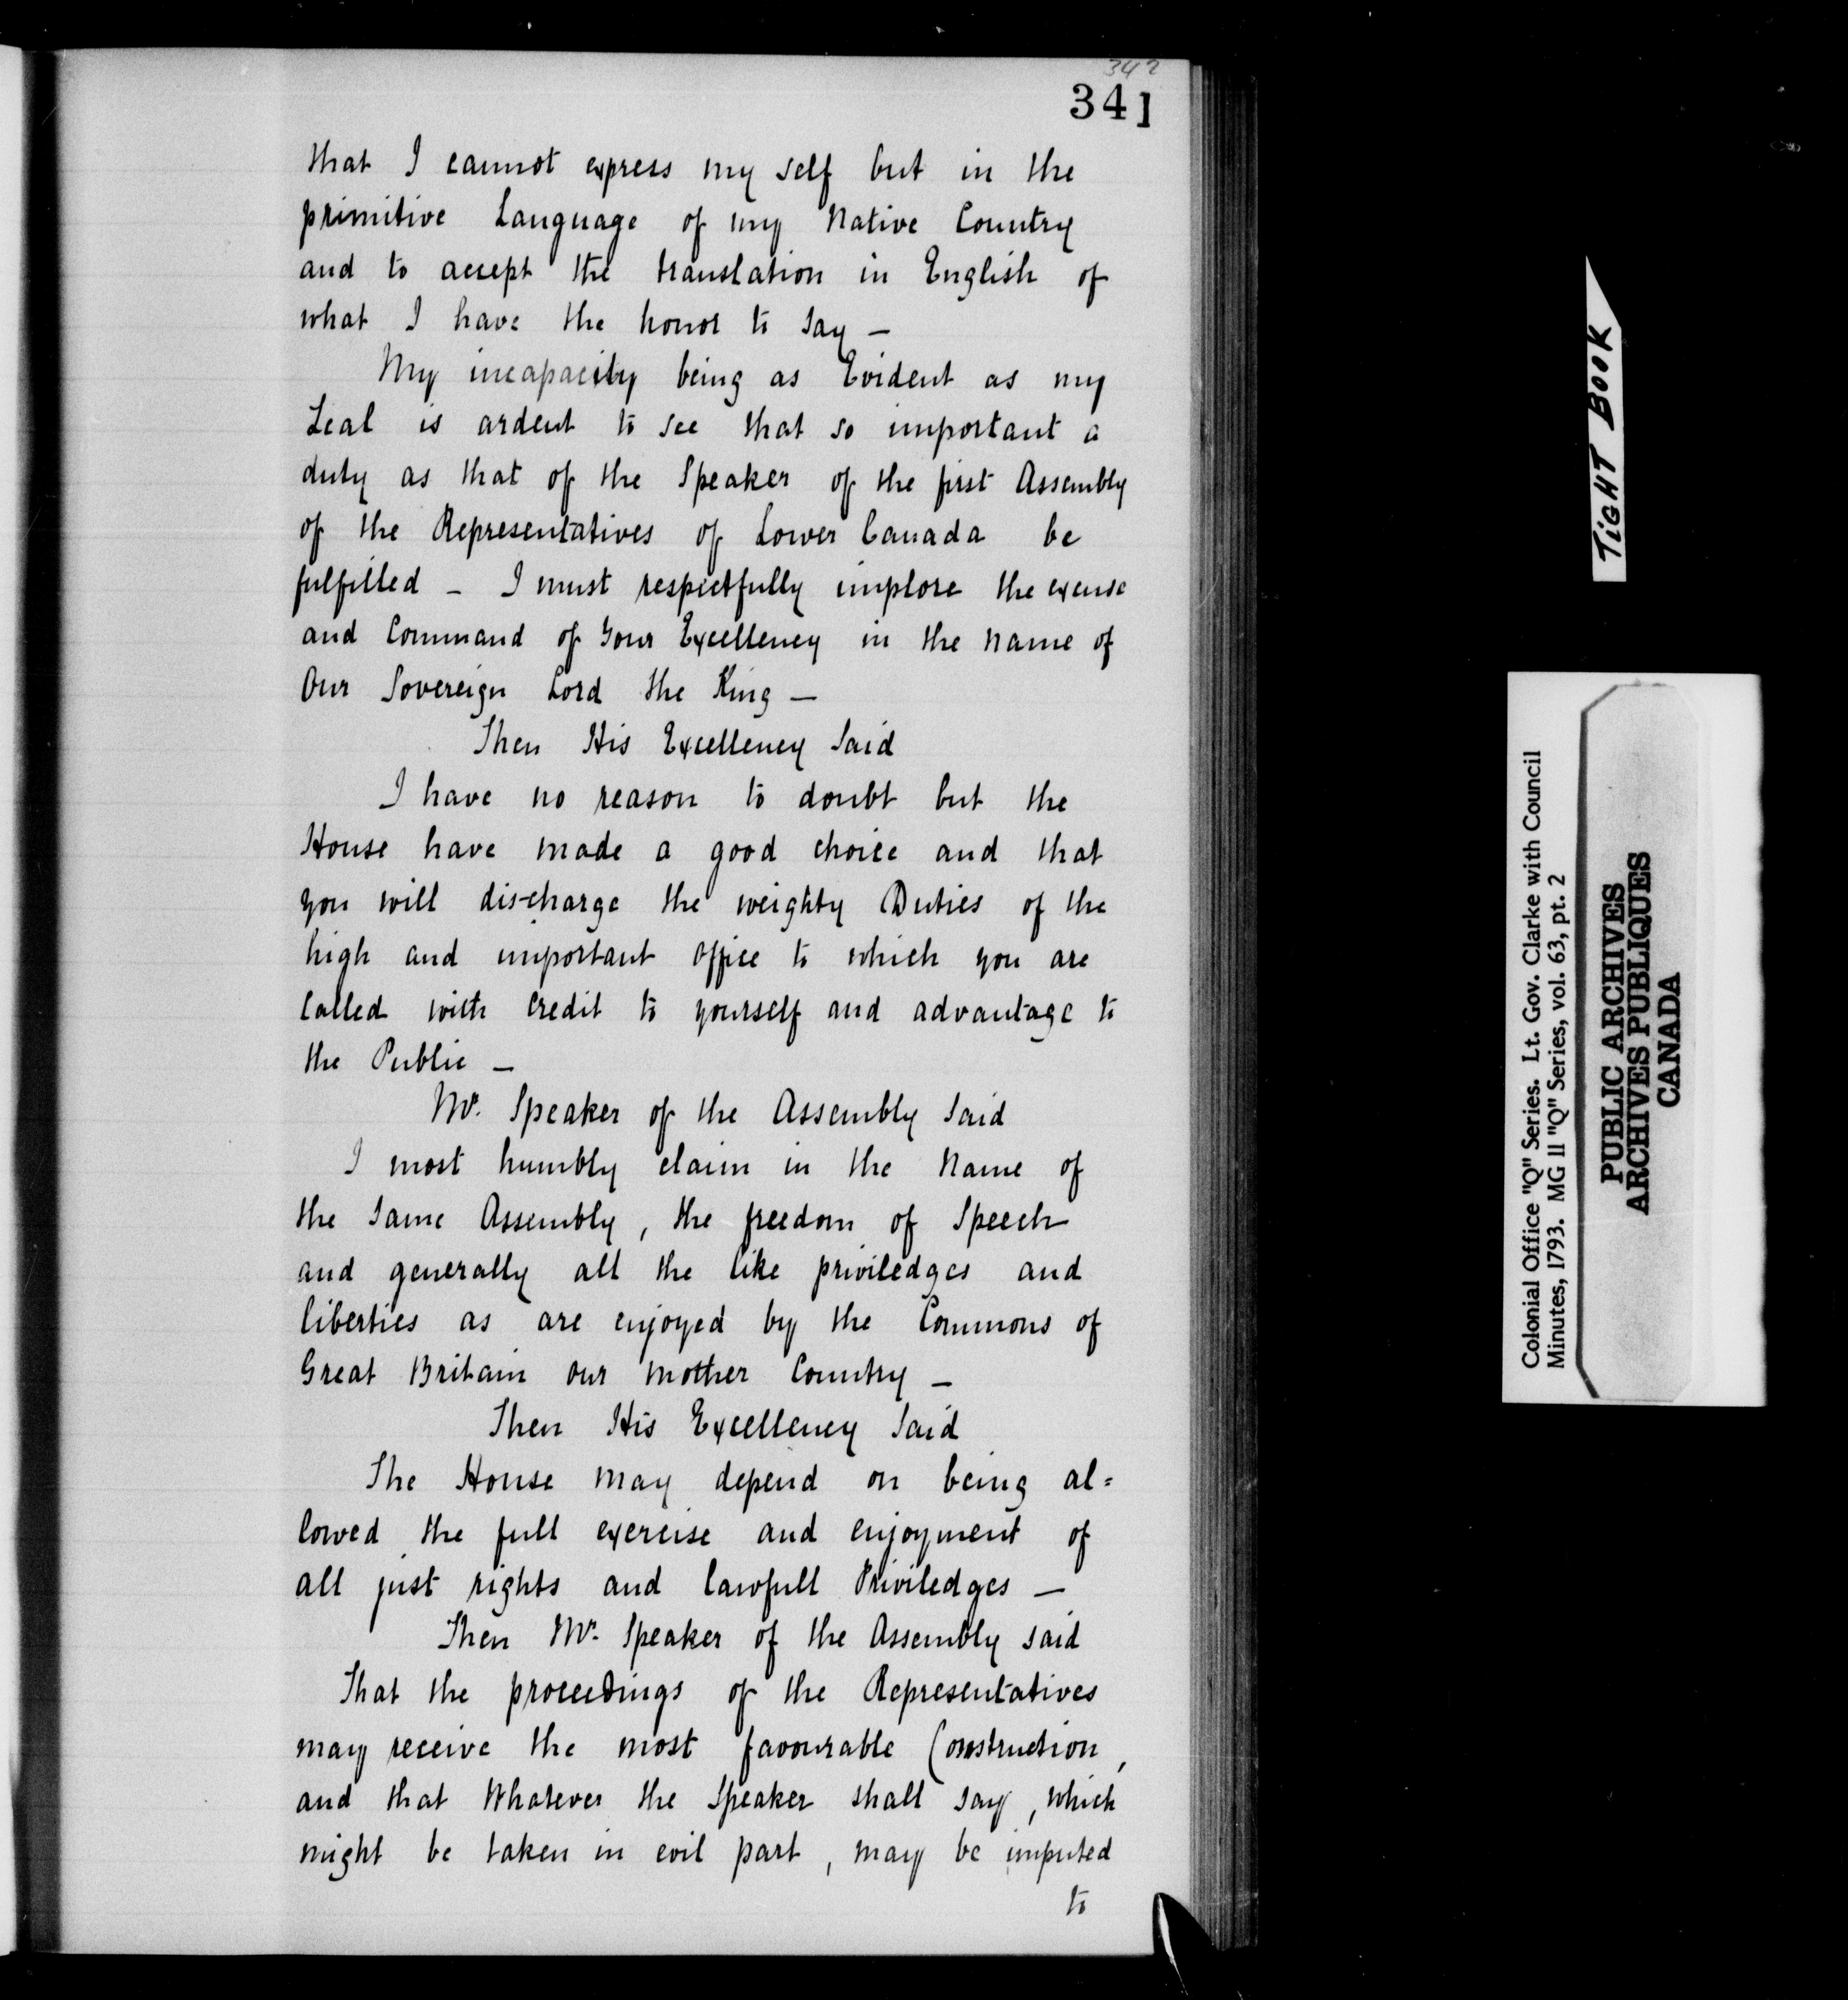 342
341
that I cannot express my self but in the
primitive Language of my Native Country
and to accept the translation in English of
what I have the honor to say —
My incapacity being as Evident as my
Zeal is ardent to see that so important a
duty as that of the Speaker of the first Assembly
of the Representatives of Lower Canada be
fulfilled – I must respectfully implore the excuse
and Command of Your Excellency in the name of
Our Sovereign Lord the King —
Then His Excellency Said
I have no reason to doubt but the
House have made a good choice and that
you will discharge the weighty Duties of the
high and important office to which you are
Called with Credit to yourself and advantage to
the Public —
Mr. Speaker of the Assembly Said
I most humbly claim in the Name of
the Same Assembly, the freedom of Speech
and generally all the like priviledges and
liberties as are enjoyed by the Commons of
Great Britain our Mother Country —
Then His Excellency Said
The House may depend on being al=
lowed the full exercise and enjoyment of
all just rights and lawfull Priviledges —
Then Mr. Speaker of the Assembly said
That the proceedings of the Representatives
may receive the most favourable Construction,
and that Whatever the Speaker shall say, which
might be taken in evil part, may be imputed
to
TIGHT BOOK
Colonial Office "Q" Series. Lt. Gov. Clarke with Council
Minutes, 1793. MG 11 "Q" Series, vol. 63, pt. 2
PUBLIC ARCHIVES
ARCHIVES PUBLIQUES
CANADA